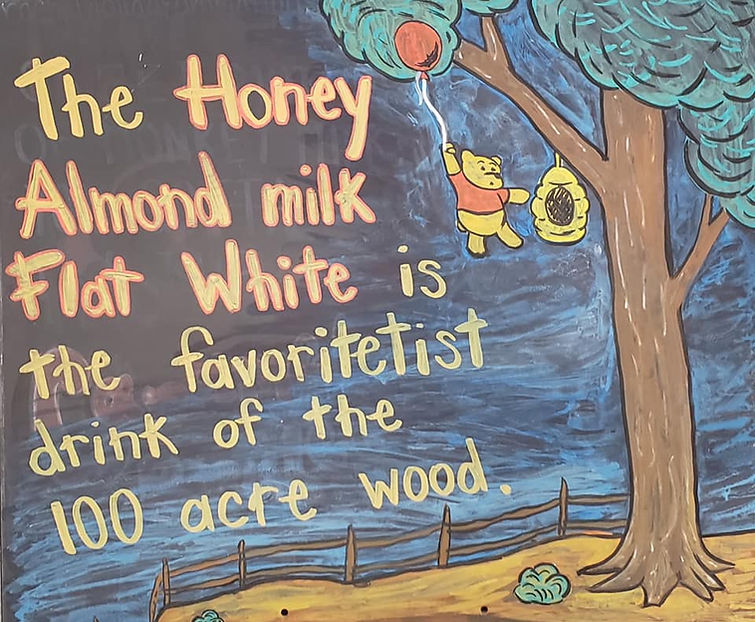 The Honey
Almond milk
Flat White is
the favoritetist
drink of the
100 acre wood.